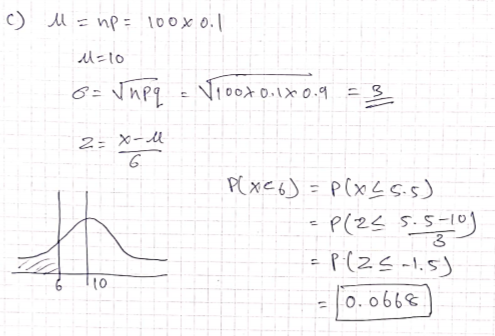 c) μ = np = 100 x 0.1
μ=10
σ = √npq = √100x0.1x0.9 = 3
Z = x-μ/σ
P(x<6) = P(x≤5.5)
= P(Z≤ 5.5-10/3)
= P(Z≤ -1.5)
= 0.0668
6 10